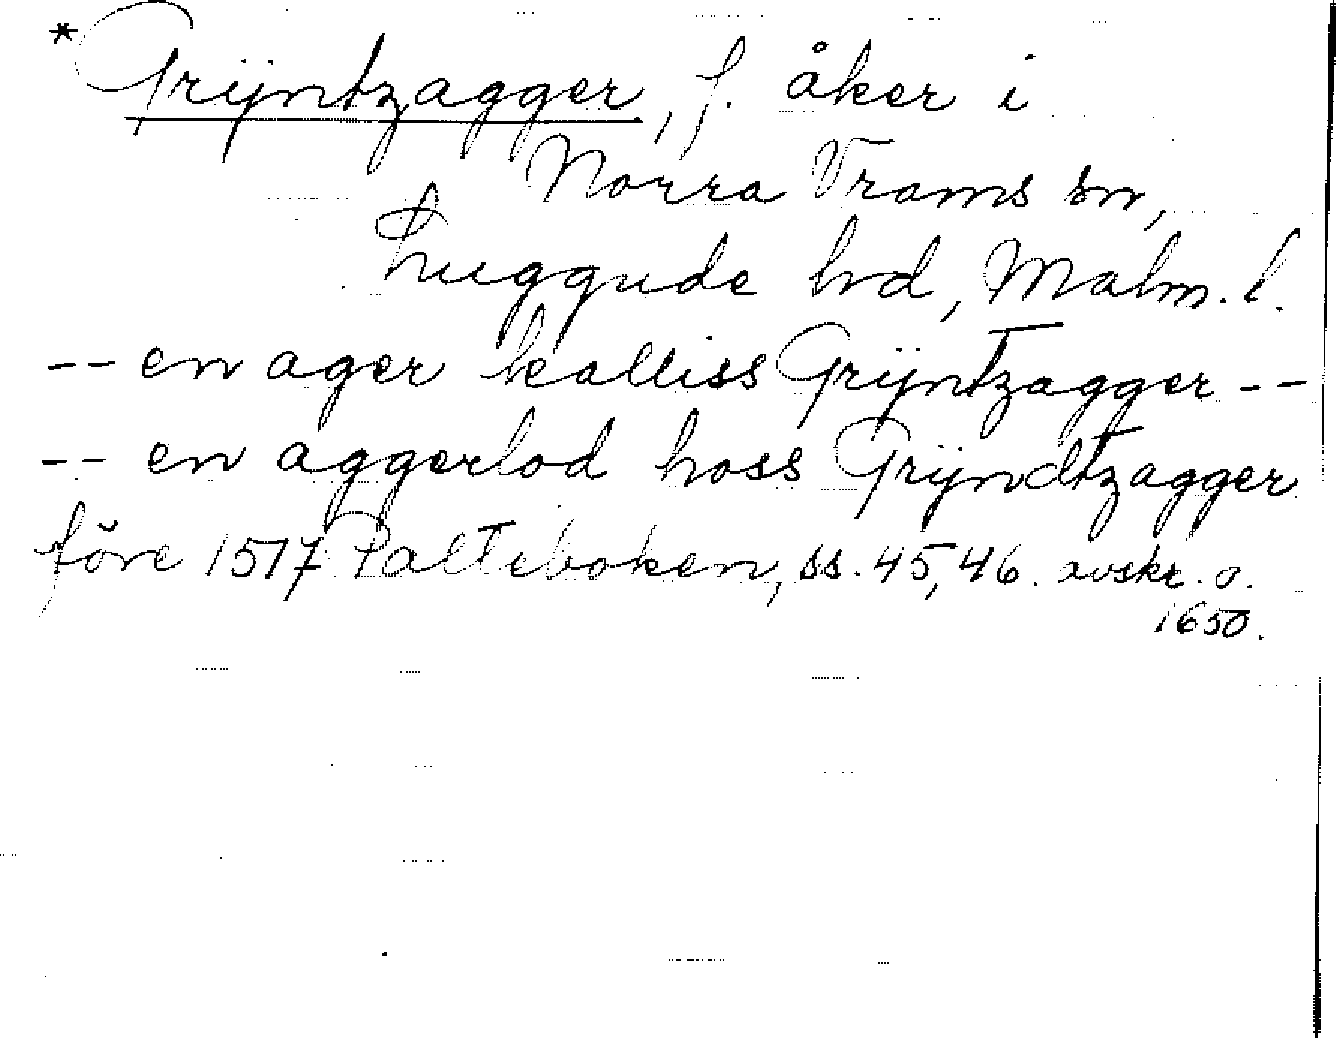 * Grijntzagger, f. åker i
Norra Vrams sn,
Luggude hd, Malm. l.
-- en ager kalliss Grijntzagger --
-- en aggerlod hoss Grijndtzagger
före 1517 Palteboken, ss. 45, 46. avskr. o.
1650.